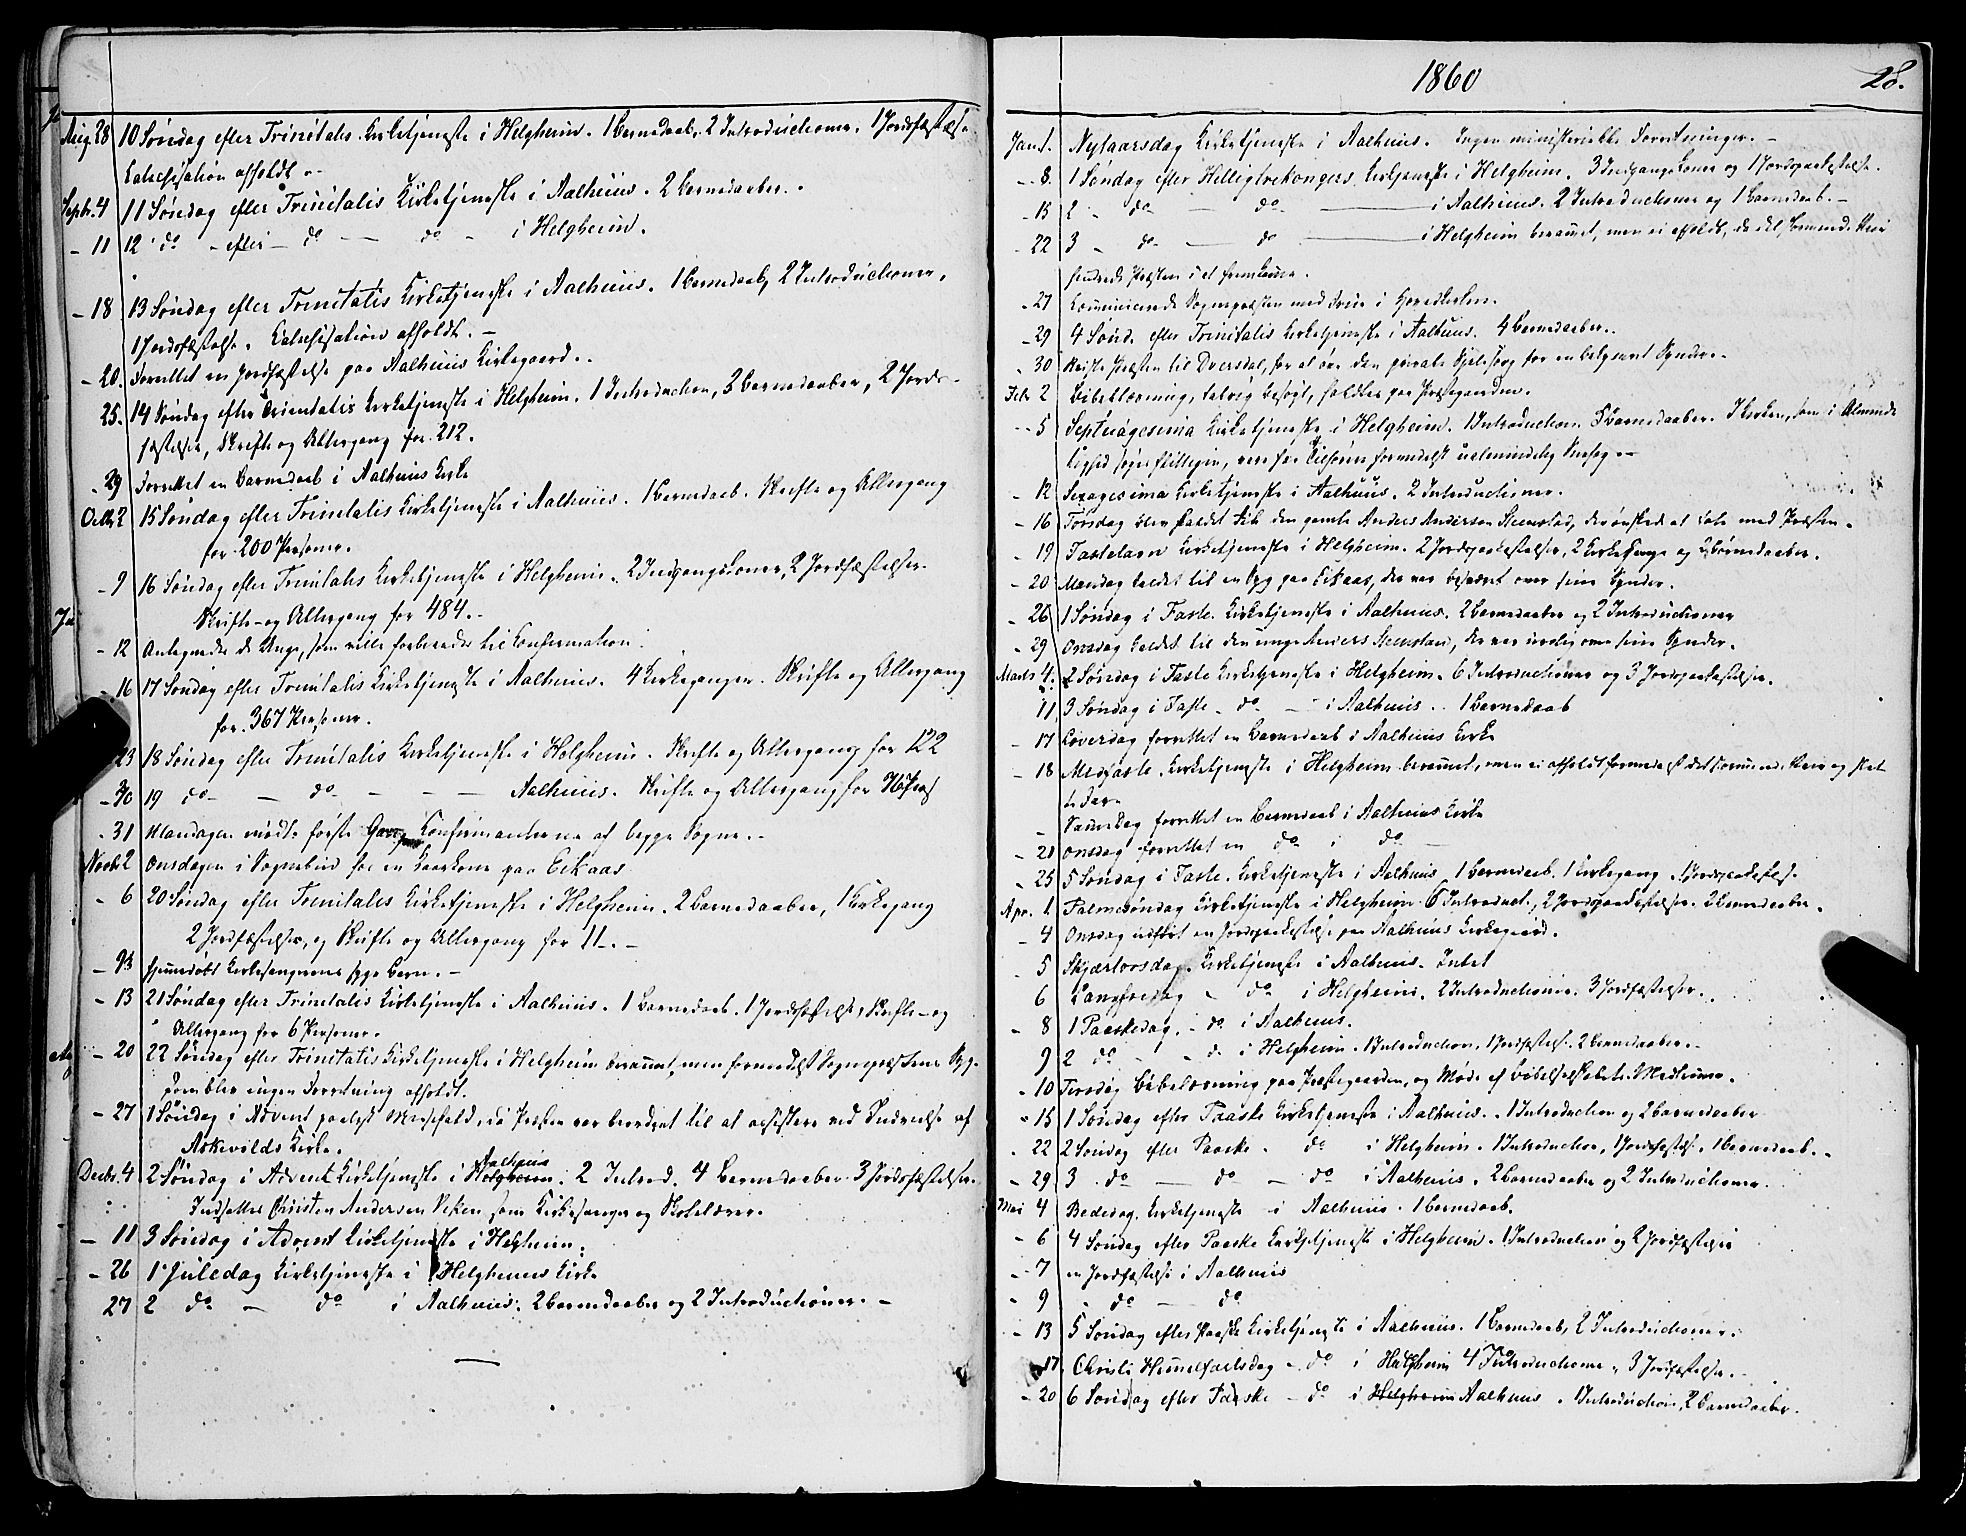 Aug. 28 10 Søndag efter Trinitatis. Kirketjeneste i Helgheim. 1 Barnedaab, 2 Introductioner. 1 Jordfæstelse
Catechisation afholdt.
Septr. 4 11 Søndag efter Trinitatis Kirketjeneste i Aalhuus. 2 Barnedaaber.
- 11 12 do - efter - do - do - i Helgheim.
- 18 13 Søndag efter Trinitatis Kirketjeneste i Aalhuus. 1 Barnedaab, 2 Introductioner,
1 Jordfæstelse. Catechisation afholdt. -
- 20. Forrettet en Jordfæstelse paa Aalhuus Kirkegaard.
25. 14 Søndag efter Trinitatis Kirketjeneste i Helgheim. 1 Introduction, 3 Barnedaaber, 2 Jord-
fæstelser, Skrifte og Altergang for 212.
- 29 Forrettet en Barnedaab i Aalhuus Kirke
Octbr 2 15 Søndag efter Trinitatis Kirketjeneste i Aalhuus. 1 Barnedaab. Skrifte og Altergang
for 200 Personer.
- 9 16 Søndag efter Trinitatis Kirketjeneste i Helgheim. 2 Indgangskoner, 2 Jordfæstelser.
Skrifte- og Altergang for 484. -
- 12 Antegnedes de Unge, som ville forberedes til Confirmation.
- 16 17 Søndag efter Trinitatis Kirketjeneste i Aalhuus. 4 Kirkeganger. Skrifte og Altergang
for 367 Personer.
23 18 Søndag efter Trinitatis Kirketjeneste i Helgheim. Skrifte og Altergang for 122
- 30 19 do - do - - - Aalhuus. Skrifte og Altergang for
- 31 Mandagen mødte første Gang Confirmanterne af begge Sogne. -
Novbr 2 Onsdagen i Sognebud for en Kaarkone paa Eikaas
- 6 20 Søndag efter Trinitatis Kirketjeneste i Helgheim. 2 Barnedaaber, 1 Kirkegang
2 Jordfæstelser, og Skrifte og Altergang for 11. -
Hjemmedøbt Kirkesangerens syge Barn. -
- 13 21 Søndag efter Trinitatis Kirketjeneste i Aalhuus. 1 Barnedaab. 1 Jordfæstelse, Skrifte- og
Altergang for 6 Personer.
- 20 22 Søndag efter Trinitatis Kirketjeneste i Helgheim berammet, men formedelst Sognepræstens Syg-
dom blev ingen Forretning afholdt.
- 27 1 Søndag i Advent paalyst Messefald, da Præsten var beordret til at assistere ved Indvielse af
Askevolds Kirke.
Decbr. 4 2 Søndag i Advent Kirketjeneste i Helgheim Aalhuus. 2 Introd. 4 Barnedaaber. 3 Jordfæstelser.
Indsattes Christen Andersen Veken som Kirkesanger og Skolelærer.
- 11 3 Søndag i Advent Kirketjeneste i Helgheim.
- 26 1 Juledag Kirketjeneste i Helgheims Kirke
27 2 do - do i Aalhuus. 2 Barnedaaber og 2 Introductioner. -
1860
28.
Jan. 1. Nytaarsdag Kirketjeneste i Aalhuus. Ingen ministerielle Forretninger. -
- 8. 1 Søndag efter Helligtrekongers Kirketjeneste i Helgheim. 3 Indgangskoner og 1 Jordpaakastelse.
- 15 2 - do - do - i Aalhuus. 2 Introductioner og 1 Barnedaab. -
- 22 3 - do - do - i Helgheim berammet, men ei afholdt, da det stormende Veir
hindrede Præsten i at fremkomme.
- 27 Communicerede Sognepræsten med Frue i Hovedkirken.
- 29 4 Sønd. efter Trinitatis Kirketjeneste i Aalhuus. 4 Barnedaaber.
- 30 Reiste Præsten til Dversdal, for at øve den private Sjelesorg for en bekymret Synder. -
Febr 2 Bibellæsning, talrig besøgt, holdtes paa Præstegaarden.
- 5 Septuagesima Kirketjeneste i Helgheim. 1 Introduction. 5 Barnedaaber. I Kirken, som i Alminde-
lighed
- 12 Sexagesima Kirketjeneste i Aalhuus. 2 Introductioner.
- 16 Torsdag blev kaldet til den gamle Anders Andersen Steenstad, der ønskede at tale med Præsten.
- 19 Fastelavn Kirketjeneste i Helgheim. 2 Jordpaakastelser, 2 Kirkegange og 2 Børnedaaber.
- 20 Mandag kaldet til en Syg paa Eikaas, der var besværet over sine Synder.
- 26 1 Søndag i Faste. Kirketjeneste i Aalhuus. 2 Barnedaaber og 2 Introductioner
- 29 Onsdag kaldet til den unge Anders Steenstad, der var urolig over sine Synder.
Marts 4. 2 Søndag i Faste Kirketjeneste i Helgheim. 6 Introductioner og 3 Jordpaakastelser.
11 3 Søndag i Faste - do - i Aalhuus. 1 Barnedaab
- 17 Løverdag forrettet en Barnedaab i Aalhuus Kirke
- 18 Midfaste. Kirketjeneste i Helgheim berammet, men ei afholdt formedelst det stormende Veir og
- Samme Dag forrettet en Barnedaab i Aalhuus Kirke
- 21 Onsdag forrettet en do i do -
- 25 5 Søndag i Faste. Kirketjeneste i Aalhuus 1 Barnedaab, 1 Kirkegang, 1 Jordpaakastelse.
Apr. 1. Palmesøndag Kirketjeneste i Helgheim. 6 Introduct., 2 Jordpaakastelser. 2 Barnedaaber.
- 4 Onsdag udført en Jordpaakastelse paa Aalhuus Kirkegaard.
- 5 Skjærtorsdag. Kirketjeneste i Aalhuus. Intet
6 Langfredag - do i Helgheim. 2 Introductioner. 3 Jordfæstelser.
- 8 1 Paaskedag. - do i Aalhuus.
9 2 do - - do i Helgheim. 1 Introduction, 1 Jordfæstelse. 2 Barnedaaber. -
- 10 Tirsdag Bibellæsning paa Præstegaarden, og Møde af Bibelselskabets Medlemmer.
- 15 1 Søndag efter Paaske Kirketjeneste i Aalhuus. 1 Introduction og 2 Barnedaaber
- 22 2 Søndag efter Paaske. do i Helgheim. 1 Introduction, 1 Jordfæstelse. 1 Barnedaab. -
- 29 3 do - do - do i Aalhuus. 2 Barnedaaber og 2 Introductioner.
Mai 4 Bededag. Kirketjeneste i Aalhuus. 1 Barnedaab.
- 6 4 Søndag efter Paaske Kirketjeneste i Helgheim. 1 Introduction og 2 Jordfæstelser
- 7 en Jordfæstelse i Aalhuus
- 9 - do - do
- 13 5 Søndag efter Paaske Kirketjeneste i Aalhuus. 1 Barnedaab, 2 Introductioner.
17. Christi Himmelfartsdag - do i Helgheim 4 Introductioner, 3 Jordfæstelser. -
- 20 6 Søndag efter Paaske - do i Helgheim Aalhuus. 1 Introduction, 2 Barnedaaber.